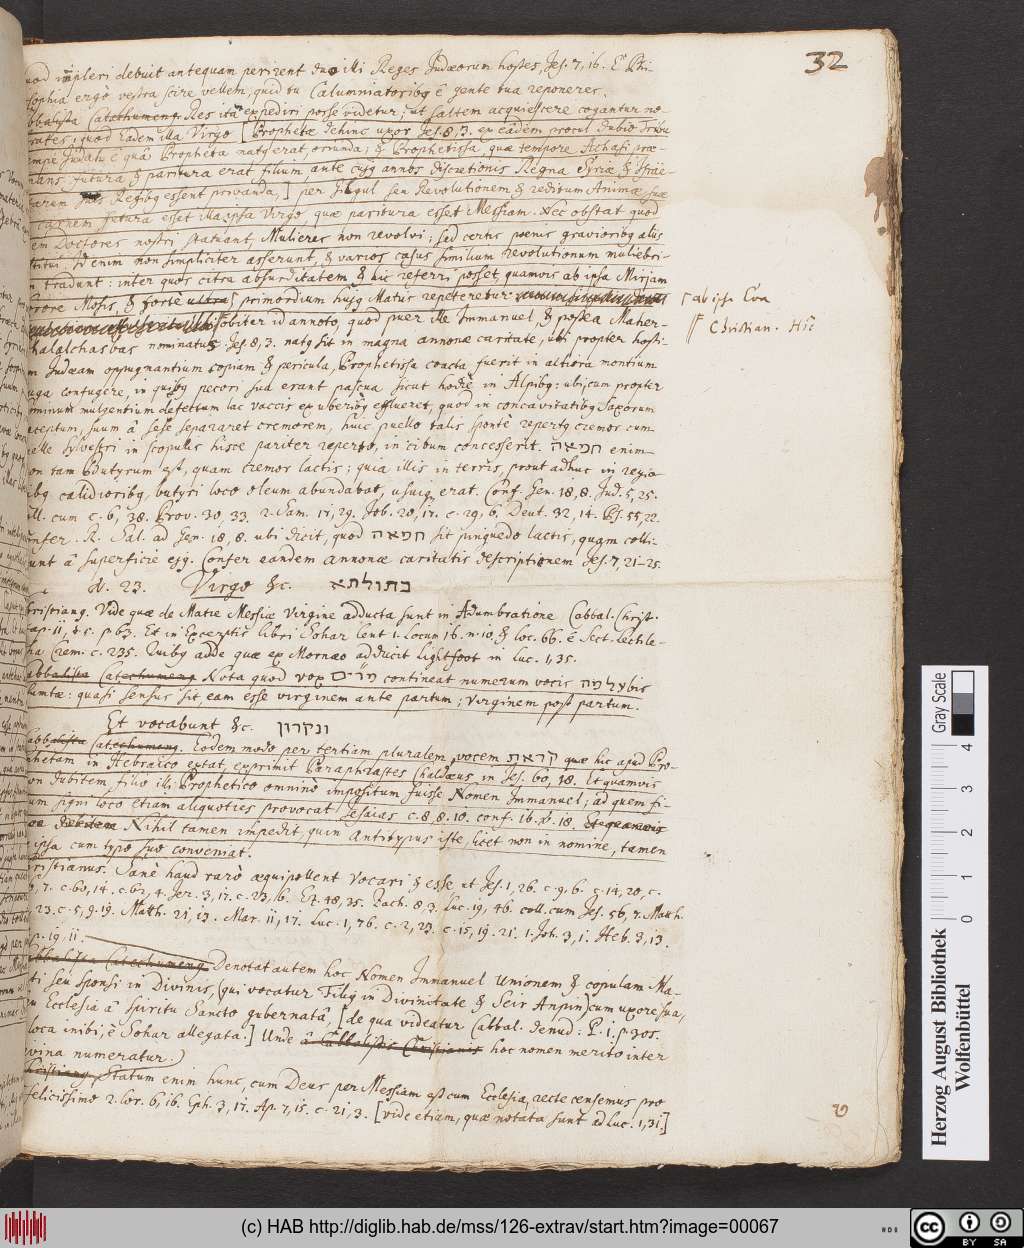 32
impleri debuit antequam perirent duo illi Reges Judæorum hostes, Jes. 7, 16. Phi-
sophia ergò vestra scire vellem, quid tu Calumniatoribq è gente tua reponeres.
Catechumeng. Res ita expediri posse videtur; ut saltem acquiescere cogantur no-
quod eadem illa Virgo [Prophetæ dehinc uxor Jes. 8, 3. ex eadem procul dubio Tribu
Juda è quâ Propheta natq erat, oriunda; & Prophetissa quæ tempore Achasi præ-
futura & paritura erat filium ante cujq annos discretionis Regna Syriæ &
Regibq essent privanda,] per Gilgul seu Revolutionem & reditum Animæ suæ
futura esset illa ipsa Virgo, quæ paritura esset Messiam. Nec obstat quod
Doctores nostri statuant, Mulieres non revolvi; sed certis poenis gravioribq aliis
Id enim non simpliciter asserunt, & varios casus similium revolutionum muliebri-
tradunt: inter quos citra absurditatem & hic referri posset, quamvis ab ipsa Mirjam
Mosis, & forte ultra [primordium hujq Matris repeteretur
obiter id annoto, quod puer ille Immanuel, & postea Maher-
schalalchasbas nominatus Jes. 8, 3. natq sit in magna annonæ caritate, ubi propter hosti-
Judæam oppugnantium copiam & pericula, Prophetissa coacta fuerit in altiora montium
confugere, in quibq pecori sua erant pascua sicut hodiè in Alpibq: ubi, cum propter
mulgentium defectum lac vaccis ex uberibq efflueret, quod in concavitatibq saxorum
suum â sese separaret cremorem, huic puello talis sponte repertq cremor cum
melle sylvestri in scopulis hisce pariter reperto, in cibum concesserit. חמאה enim
non tam butyrum est, quam cremor lactis; quia illis in terris, prout adhuc in regio-
nibq calidioribq, butyri loco oleum abundabat, usuiq erat. Conf. Gen. 18, 8. Jud. 5, 25.
coll. cum c. 6, 38. Prov. 30, 33. 2. Sam. 17, 29. Job. 20, 17. c. 29, 6. Deut. 32, 14. Ps. 55, 22.
Confer. R. Sal. ad Gen. 18, 8. ubi dicit, quod חמאה sit pinguedo lactis, quam colli-
gunt â superficie ejq. Confer eandem annonæ caritatis descriptionem Jes. 7, 21-25.
ab ipsa Eva
Christian. Hic
v. 23. Virgo &c. בתולתא
Christianq. Vide quæ de Matre Messiæ Virgine adducta sunt in Adumbratione Cabbal. Christ.
cap. 11, §. c. p. 63. Et in Excerptis libri Sohar Cent. 1. Locum 16. n. 10. & loc. 66. è Sect. Lechle-
cha Crem. c. 235. Quibq adde quæ ex Mornæo adducit Lightfoot in Luc. 1, 35.
Cabbalista Catechumeng Nota quod vox מרים contineat numerum vocis עלמה bis
sumtæ: quasi sensus sit, eam esse virginem ante partum; virginem post partum.
Et vocabunt &c. ונקרון
Cabbalista Catechumeng. Eodem modo per tertiam pluralem vocem קראת quæ hic apud Pro-
phetam in Hebraico extat, exprimit Paraphrastes Chaldæus in Jes. 60, 18. Et quamvis
non dubitem, filio illi Prophetico omninò impositum fuisse Nomen Immanuel; ad quem fi-
lium signi loco etiam aliquoties provocat Jesaias c. 8, 8. 10. conf. ib. v. 18. Et quamvis
non dubitem Nihil tamen impedit, quin Antitypus iste, licet non in nomine, tamen
re ipsa cum typo suo conveniat.
Christianus. Sanè haud rarò æquipollent Vocari & esse ut Jes. 1, 26. c. 9, 6. c. 14, 20, c.
7. c. 60, 14. c. 62, 4. Jer. 3, 17. c. 23, 6. Ez. 48, 35. Zach. 8, 3. Luc. 19, 46. coll. cum Jes. 56, 7. Matth.
23. c. 5, 9. 19. Matth. 21, 13. Mar. 11, 17. Luc. 1, 76. c. 2, 23. c. 15, 19. 21. 1. Joh. 3, 1. Heb. 3, 13.
Ap. 19, 11.
Cabbalista Catechumeng Denotat autem hoc Nomen Immanuel Unionem & copulam Ma-
riti seu sponsi in Divinis, (qui vocatur Filiq in Divinitate & Seir Anpin) cum uxore sua,
seu Ecclesia â Spiritu Sancto gubernatâ, [de qua videatur Cabbal. denud: P. 1. p. 305.
& loca inibi, è Sohar allegata.] Unde â Cabbalistis Christianis hoc nomen merito inter
Divina numeratur.)
Christianq Statum enim hunc, cum Deus per Messiam est cum Ecclesia, recte censemus pro
felicissimo 2. Cor. 6, 16. Eph. 3, 17. Ap. 7, 15. c. 21, 3. [vide etiam, quæ notata sunt ad Luc. 1, 31.]
Herzog August Bibliothek
Wolfenbüttel
Gray Scale
0 1 2 3 4
(c) HAB http://diglib.hab.de/mss/126-extrav/start.htm?image=00067
cc BY SA